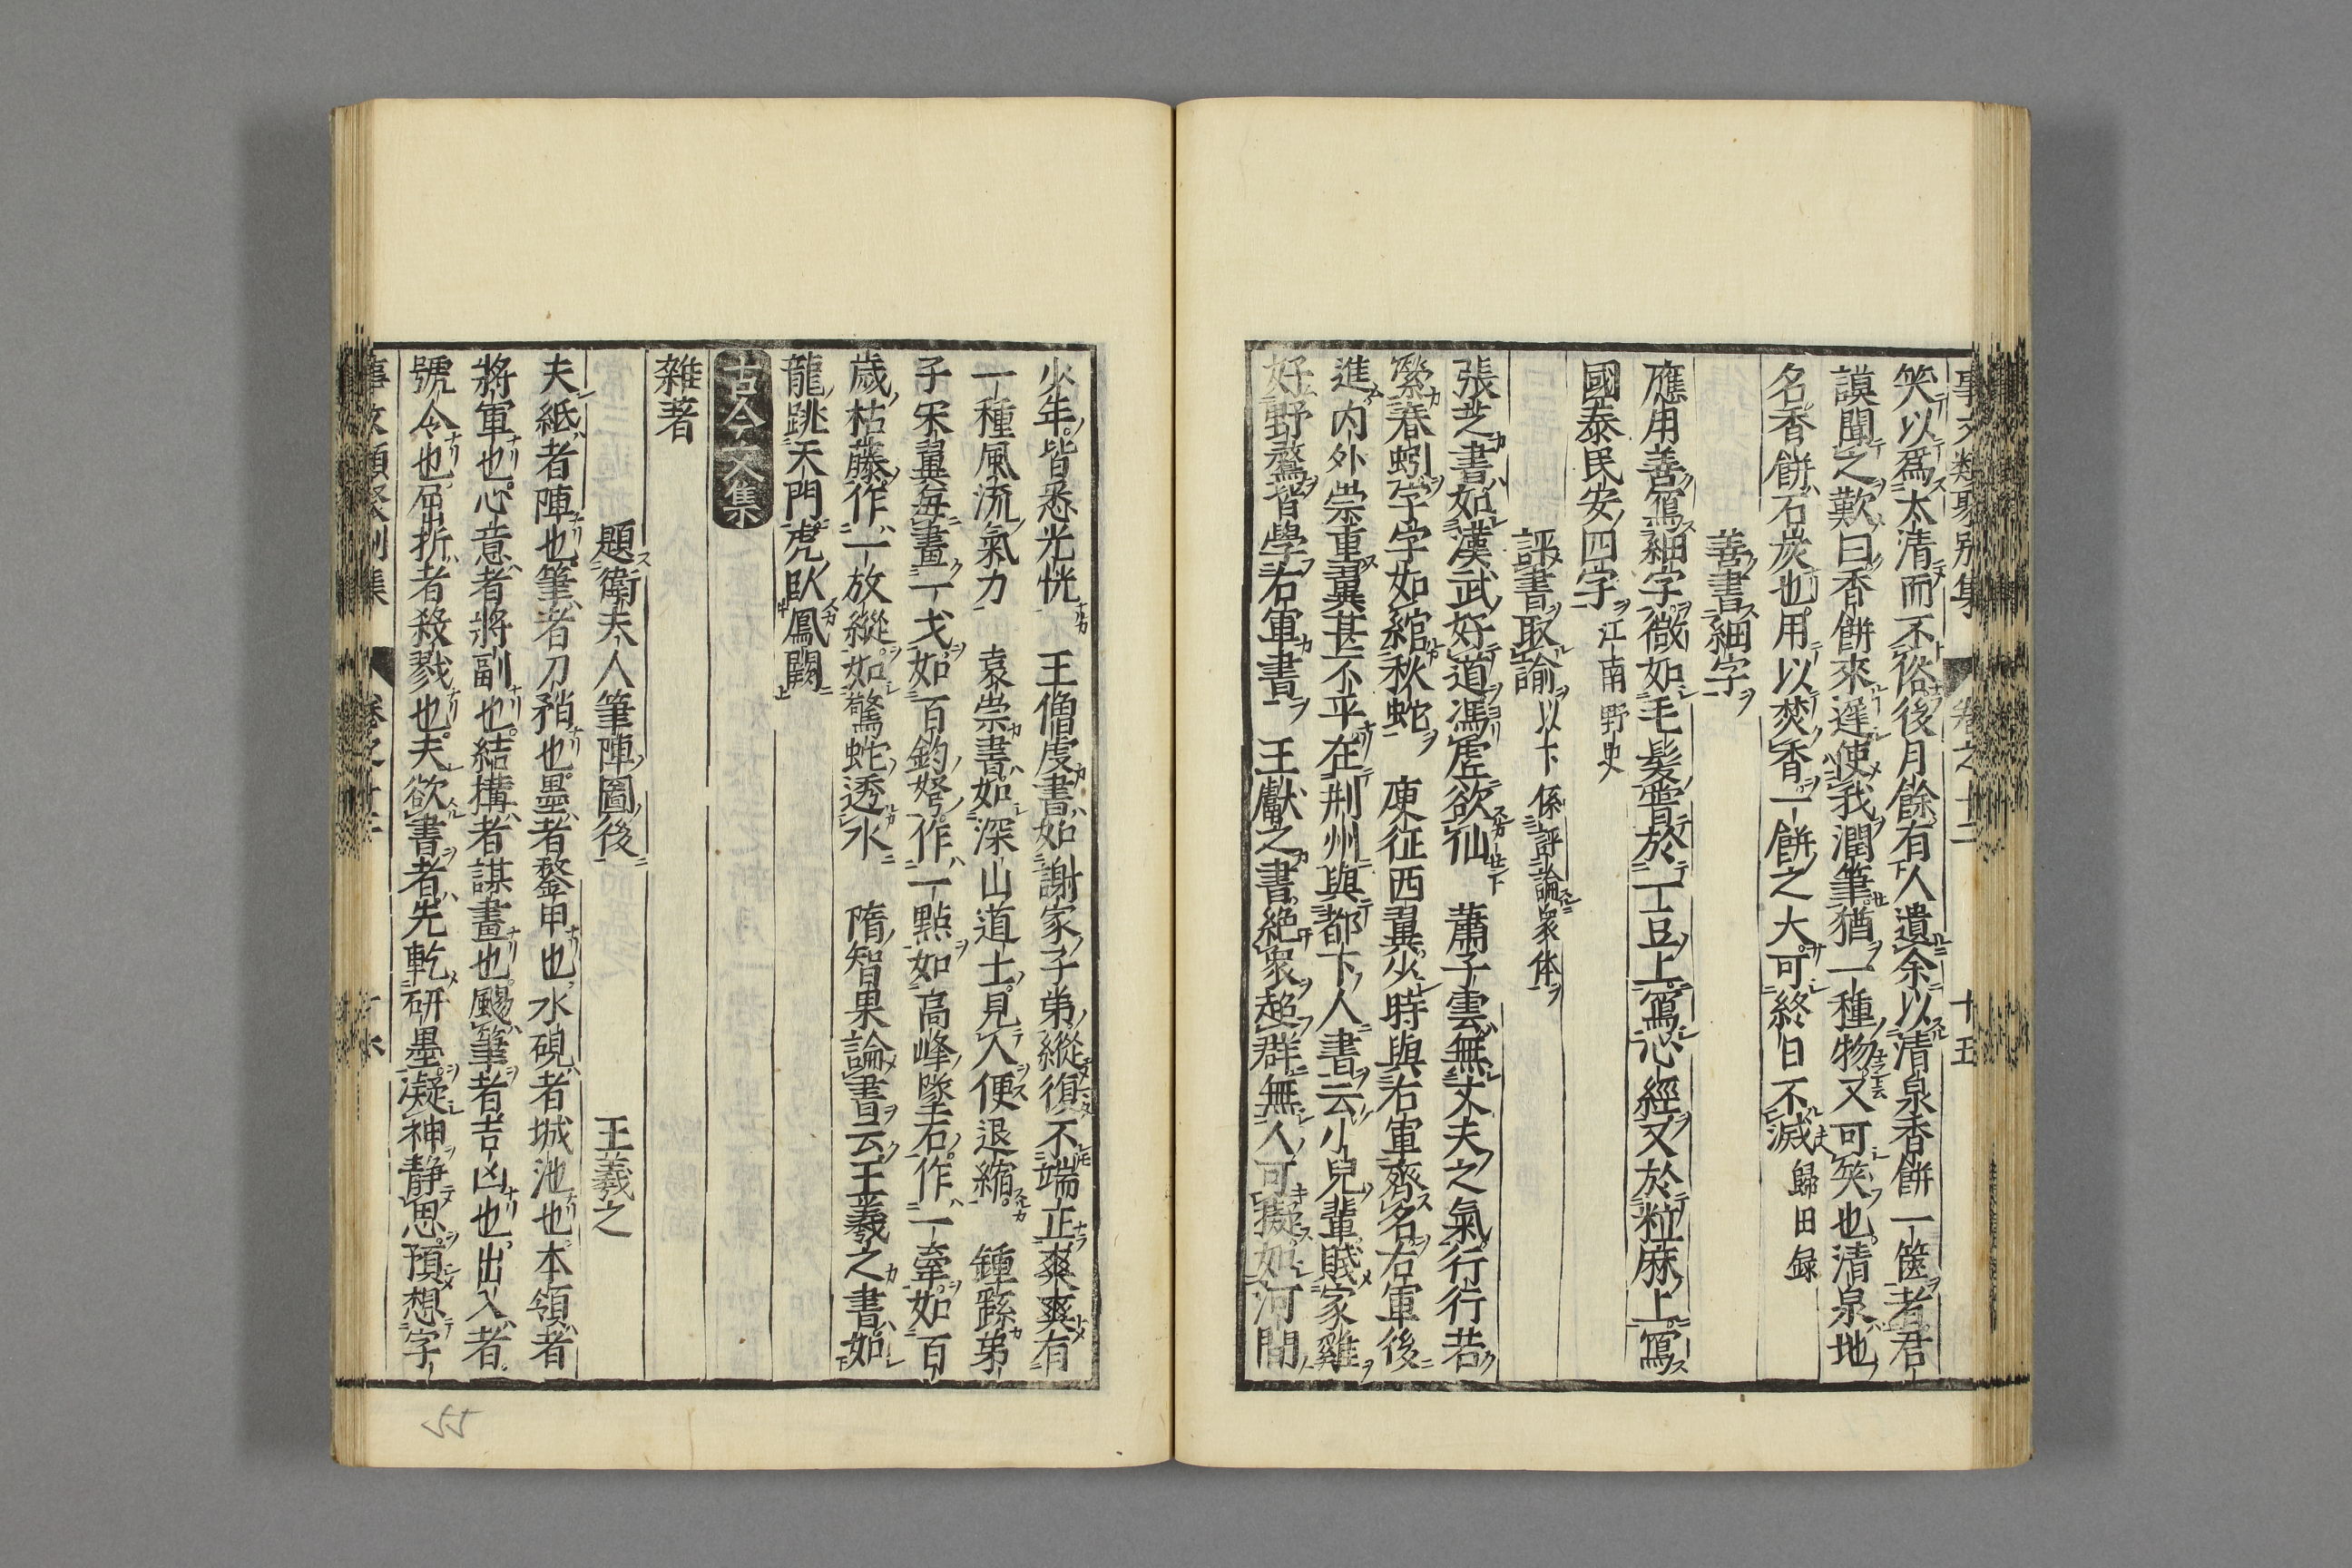 事文類聚别集 卷之十二 十五
笑以爲太清而不俗後月餘有人遺余以清泉香餠一篋者君
謨聞之歎曰香餠來遲使我潤筆猶一種物又可笑也清泉地
名香餠石炭也用以焚香一餠之大可終日不滅 歸田録
善書細字
應用善寫細字微如毛髮嘗於一豆上寫心經又於粒麻上寫
國泰民安四字 江南野史
評書取諭 以下係評論衆体
張芝書如漢武好道馮虗欲仙 蕭子雲無丈夫之氣行行若
縈春蚓字字如綰秋蛇 庾征西翼少時與右軍齊名右軍後
進内外崇重翼甚不平在荆州與都下人書云小兒輩賤家雞
好野鶩皆學右軍書 王獻之書絶衆超群無人可擬如河間
少年皆悉光恍 王僧虔書如謝家子弟縱復不端正爽爽有
一種風流氣力 袁崇書如深山道士見人便退縮 鍾繇弟
子宋翼每畫一戈如百鈞弩作一點如高峰墜石作一牽如百
歲枯藤作一放縱如驚蛇透水 隋智果論書云王羲之書如
龍跳天門虎臥鳳闕
古今文集
雜著
題衛夫人筆陣圖後 王羲之
夫紙者陣也筆者刀矟也墨者鍪甲也水硯者城池也本領者
將軍也心意者將副也結構者謀畫也颺筆者吉凶也出入者
號令也屈折者殺戮也夫欲書者先乾研墨凝神静思預想字
55